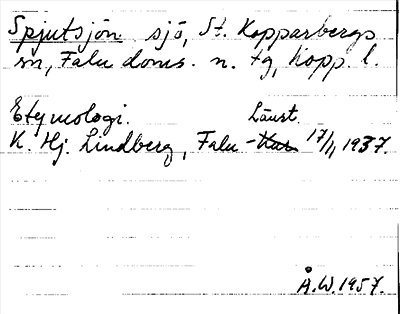 Spjutsjön sjö, St. Kopparbergs
sn, Falu doms. n. tg, Kopp. l.
Etymologi.
Länst.
K. Hj. Lindberg, Falu-Kur 17/11 1937.
Å.W. 1957.